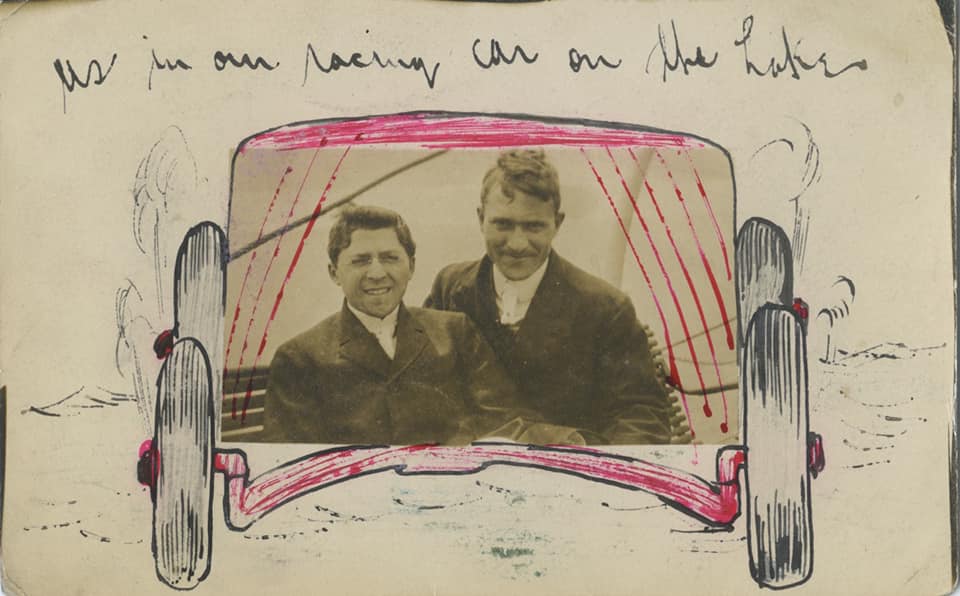 us in our racing car on the Lakes